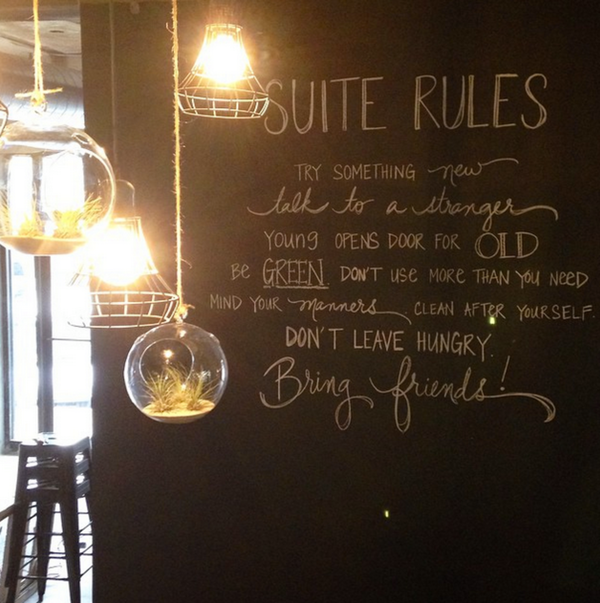 SUITE RULES
TRY SOMETHING new
talk to a stranger
YOUNG OPENS DOOR FOR OLD
Be GREEN DON'T USE MORE THAN YOU NEED
MIND YOUR manners CLEAN AFTER YOURSELF.
DON'T LEAVE HUNGRY.
Bring friends!